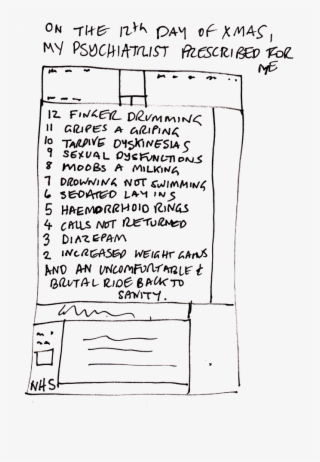 ON THE 12th DAY OF XMAS,
MY PSYCHIATRIST PRESCRIBED FOR
ME
12 FINGER DRUMMING
11 GRIPES A GRIPING
10 TARDIVE DYSKINESIAS
9 SEXUAL DYSFUNCTIONS
8 MOOBS A MILKING
7 DROWNING NOT SWIMMING
6 SEDATED LAY INS
5 HAEMORRHOID RINGS
4 CALLS NOT RETURNED
3 DIAZEPAM
2 INCREASED WEIGHT GAINS
AND AN UNCOMFORTABLE &
BRUTAL RIDE BACK TO
SANITY.
NHS